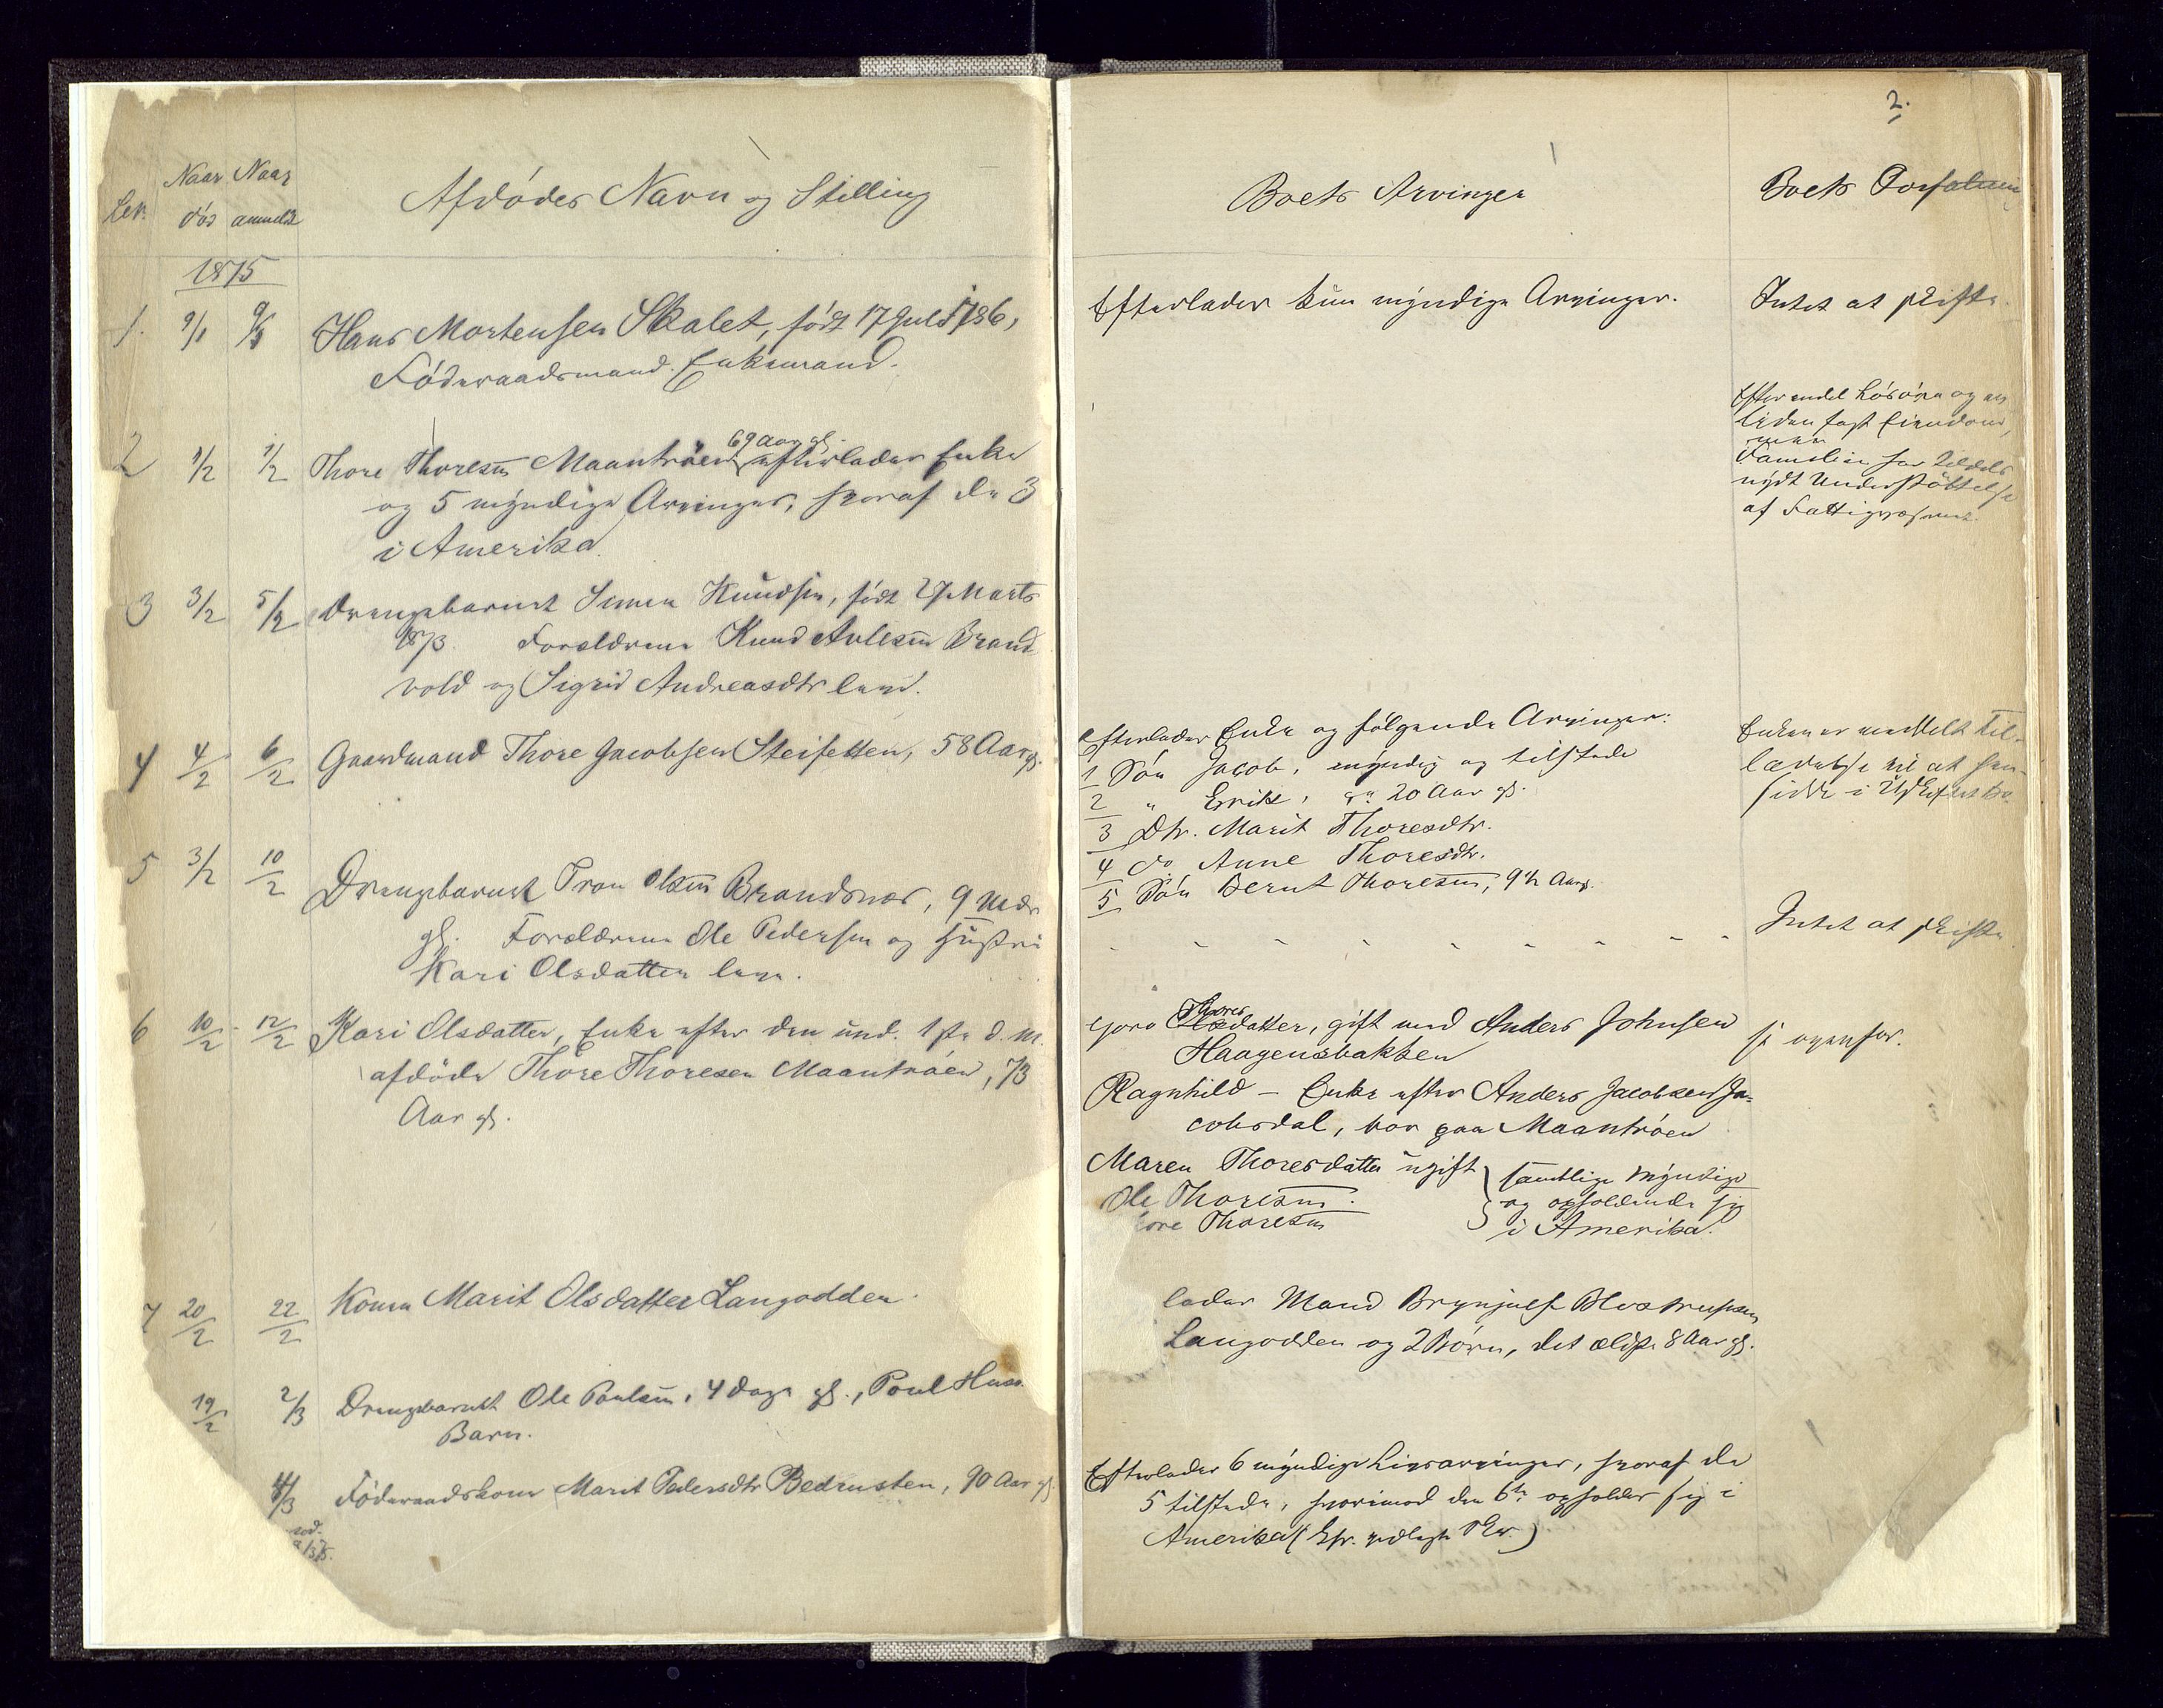 Naar Naar
død anmeldt
Afdødes Navn og Stilling
1875
1. 9/1 Hans Mortensen Skalet, født 17 Juli 1786,
Föderaadsmand. Enkemand.
2 1/2 1/2 Thore Thoresen Maantrøen 69 Aar gl. efterlader Enke
og 5 myndige Arvinger, hvoraf de 3
i Amerika
3 3/2 5/2 Drengebarnet Simen Knudsen, født 27 Marts
1873. Forældrene Knud Avlesen Brand
vold og Sigrid Andreasdtr
4 4/2 6/2 Gaardmand Thore Jacobsen Steifetten, 58 Aar gl.
5 3/2 10/2 Drengebarnet Tron Olsen Brandsnes, 9 Mdr
gl. Forældrene Ole Pedersen og Hustru
Kari Olsdatter
6 10/2 12/2 Kari Olsdatter, Enke efter den und. 1ste d. M.
afdøde Thore Thoresen Maantrøen, 73
Aar gl.
7 20/2 22/2 Konen Marit Olsdatter Langodden.
19/2 2/3 Drengebarnet Ole Poulsen, 4 Dage gl., Poul
Barn.
8/3 Föderaadskone Marit Pedersdtr 90 Aar gl.
2.
Boets Arvinger
Boets
Efterlader kun myndige Arvinger.
Intet at skifte.
Efter endel Løsøre og en
liden fast Eiendom,
men
Familien har tildels
nydt Understøttelse
af Fattigvæsenet.
Efterlader Enke og følgende Arvinger:
1 Søn Jacob, myndig og tilstede
2 " Errik, 20 Aar gl.
3 Dtr. Marit Thoresdtr.
4 do Anne Thoresdtr.
5 Søn Bernt Thoresen, 9½ Aar gl.
Enken er meddelt Til-
ladelse til at hen-
sidde i Uskiftet Bo.
Intet at skifte
Goro Thoresdatter, gift med Anders Johnsen
Haagensbakken
Ragnhild – Enke efter Anders Jacobsen Ja-
cobsdal, bor paa Maantrøen
Maren Thoresdatter ugift
Ole Thoresen.
Thoresen
samtlige myndige
og opholdende sig
i Amerika.
se ovenfor.
lader Mand Brynjulf
Langodden og 2 Børn, det ældste 8 Aar gl.
Efterlader 6 myndige Livsarvinger, hvoraf de
5 tilstede, hvorimod den 6te opholder sig i
Amerika (